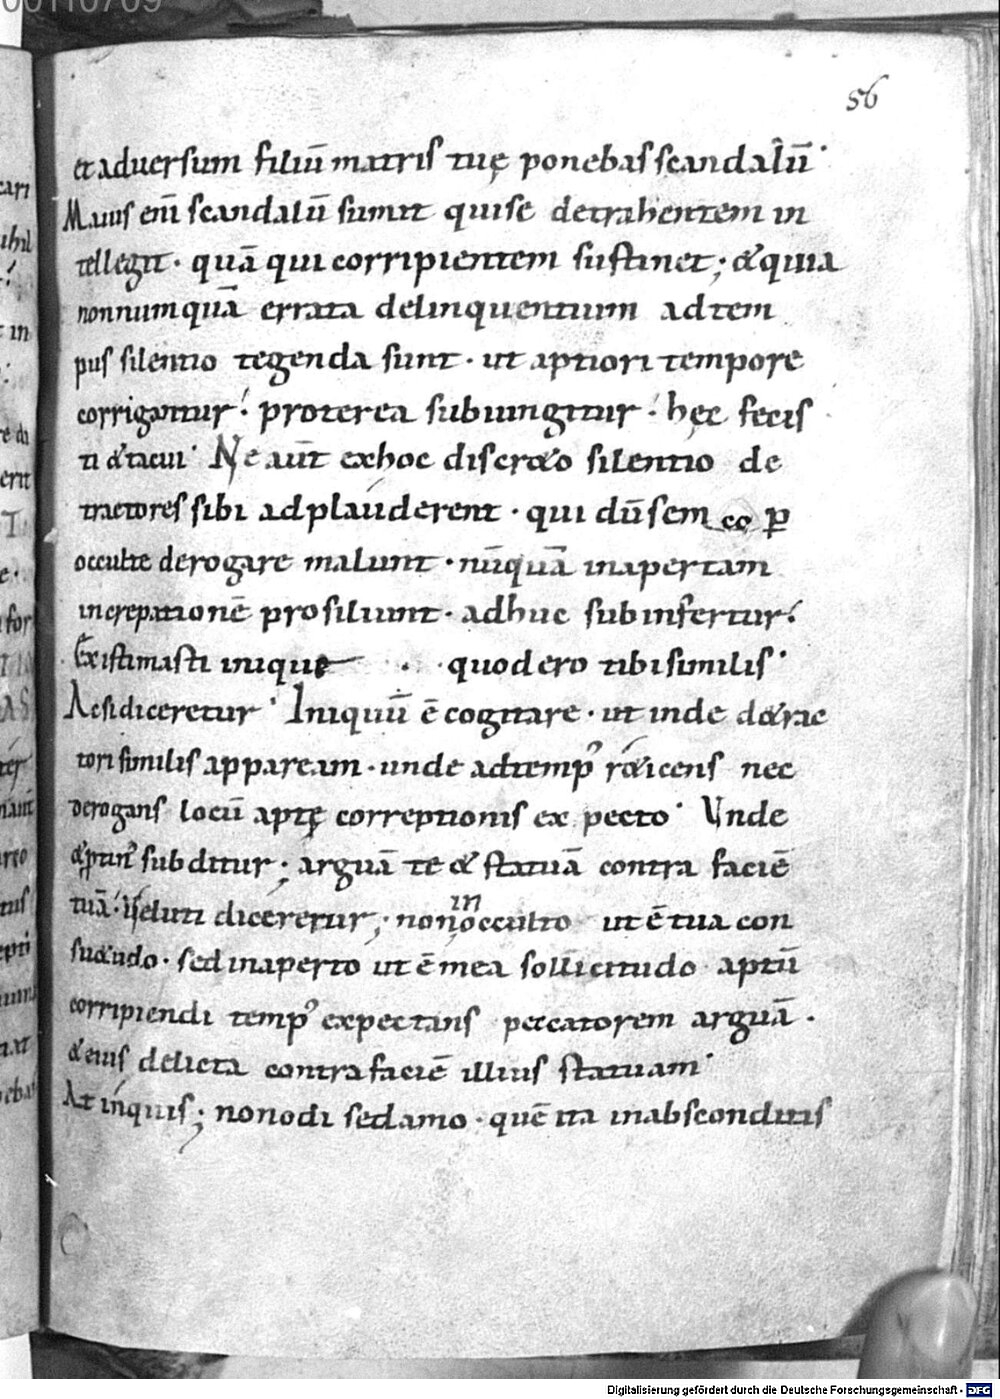 00110709
56
et aduersum filiū matris tuę ponebas scandalū ·
Maius eni scandalū sumit qui se detrahentem in
tellegit · quā qui corripientem sustinet ; & quia
nonnumquā errata delinquentium ad tem
pus silentio tegenda sunt · ut aptiori tempore
corrigantur : proterea subiungitur : hęc fecis
ti & tacui · Ne aūt ex hoc discr&o silentio de
tractores sibi adplauderent · qui dū sem p̄
occulte derogare malunt · nūquā in apertam
increpationē prosiliunt · adhuc subinfertur :
Existimasti inique · quod ero tibi similis ·
Ac si diceretur · Iniquū ē cogitare · ut inde d&rac
tori similis appaream · unde ad temp' r&icens nec
derogans locū aptę correptionis expecto · Unde
& subditur ; arguā te & statuā contra faciē
tuā · Veluti diceretur ; non in occulto ut ē tua con
su&udo · sed in aperto ut ē mea sollicitudo aptū
corripiendi temp' expectans peccatorem arguā ·
& eius delicta contra faciē illius statuam ·
At inquis ; non odi sed amo · quē ita in absconditis
Digitalisierung gefördert durch die Deutsche Forschungsgemeinschaft - DFG